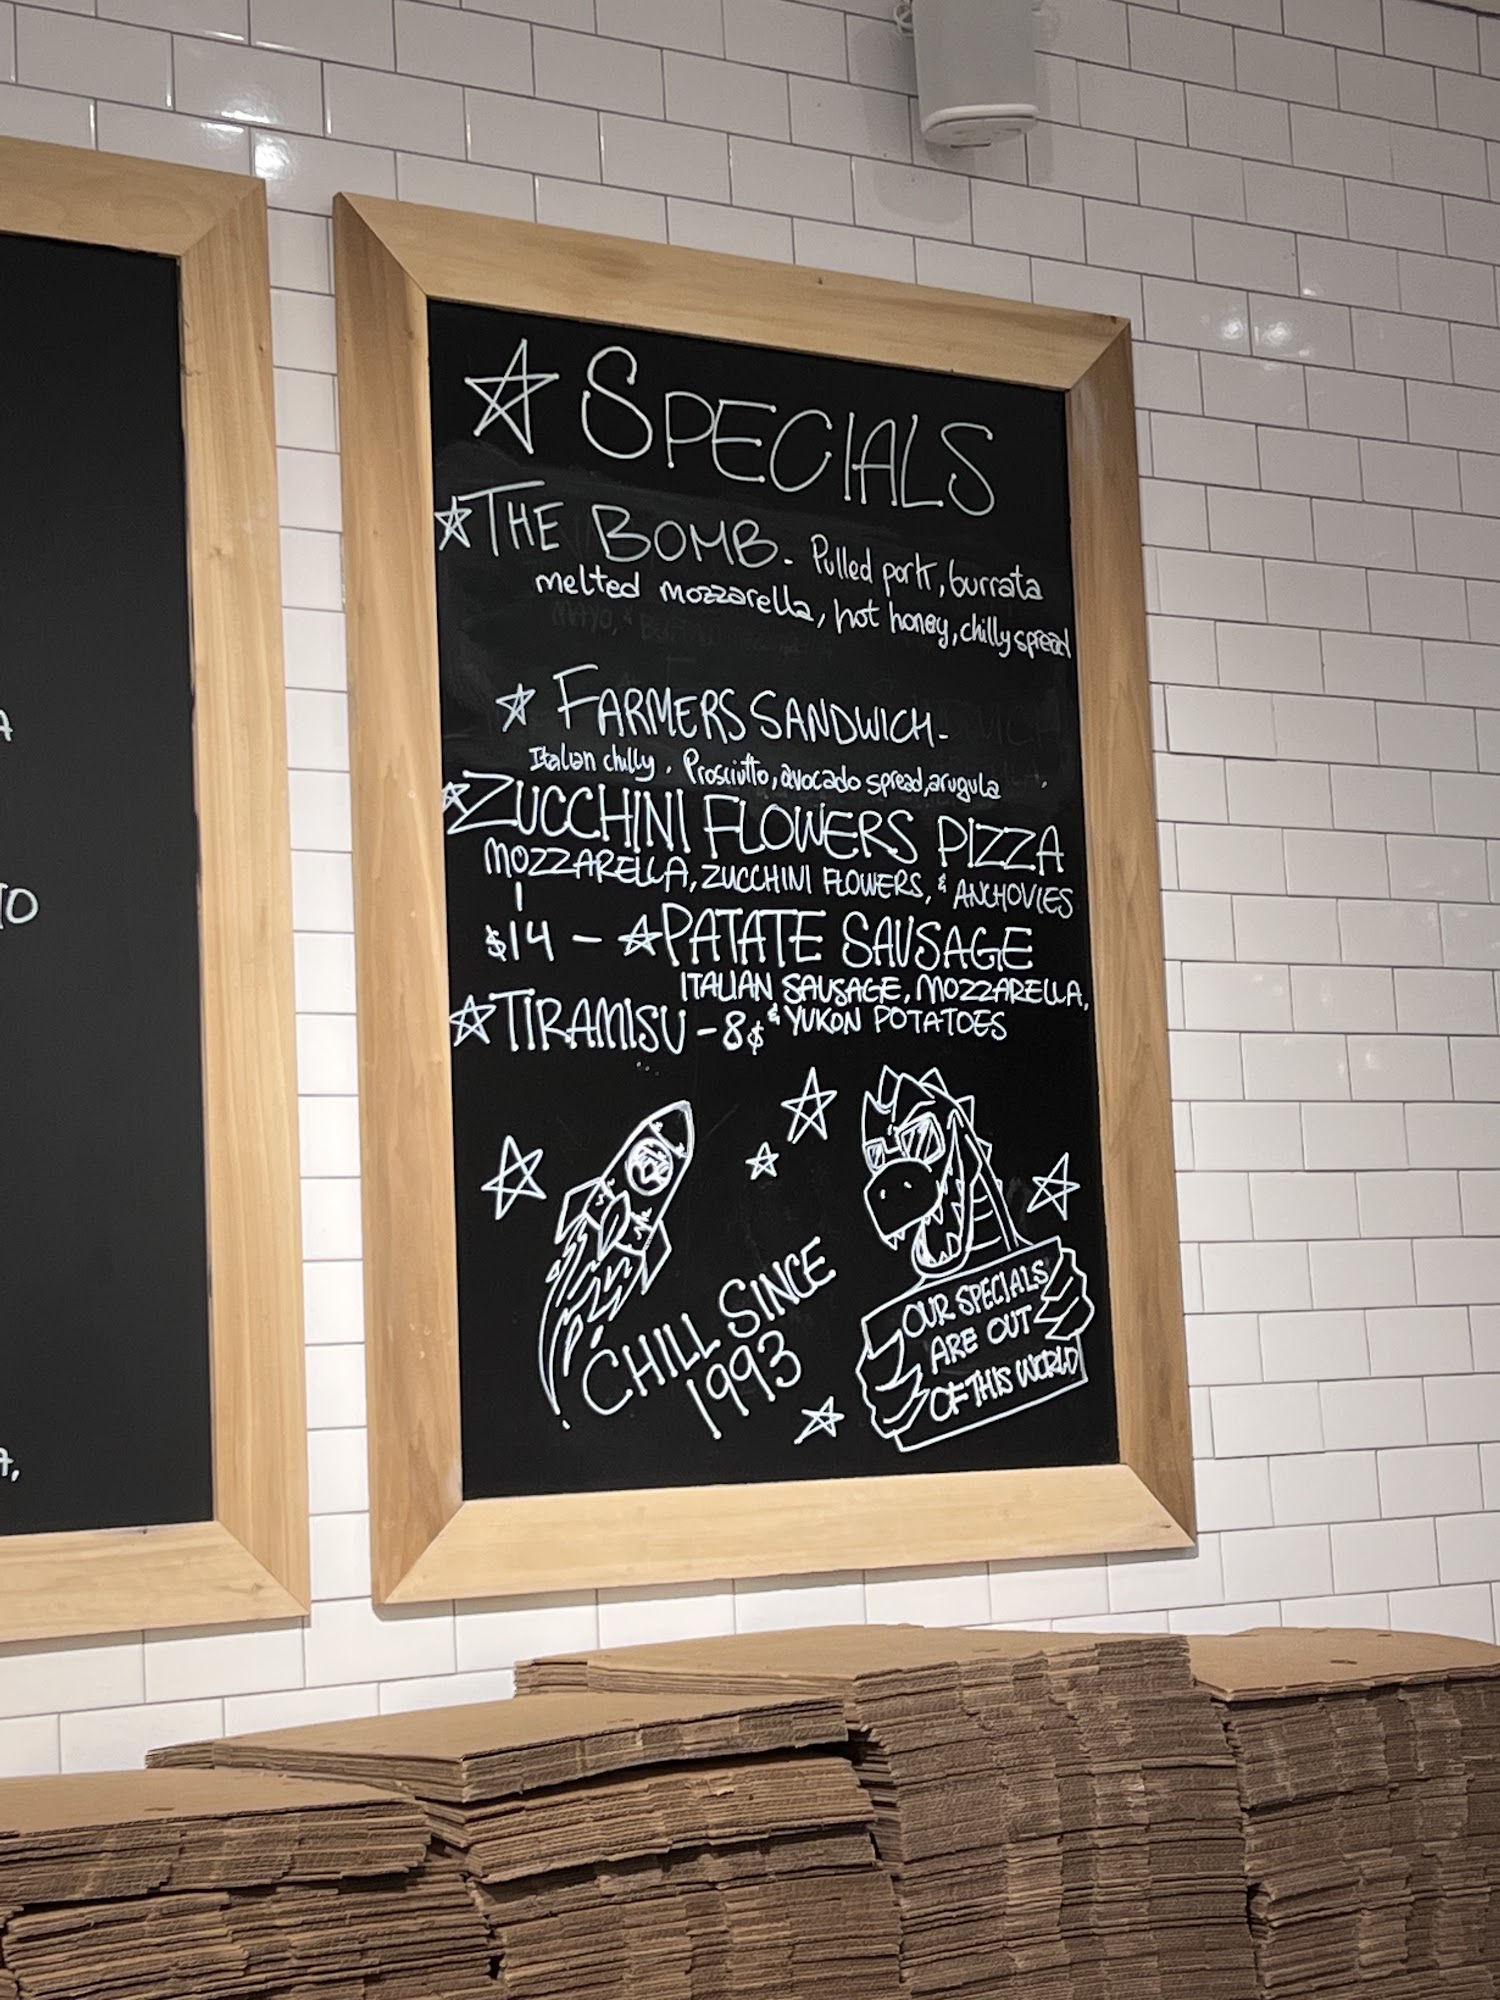 SPECIALS
THE BOMB. Pulled pork, burrata
melted mozzarella, hot honey, chilly spread
FARMERS SANDWICH-
Italian chilly, Prosciutto, avocado spread, arugula
ZUCCHINI FLOWERS PIZZA
MOZZARELLA, ZUCCHINI FLOWERS, & ANCHOVIES
$14 - PATATE SAUSAGE
ITALIAN SAUSAGE, MOZZARELLA,
& YUKON POTATOES
TIRAMISU - 8$
CHILL SINCE
1993
OUR SPECIALS
ARE OUT
OF THIS WORLD